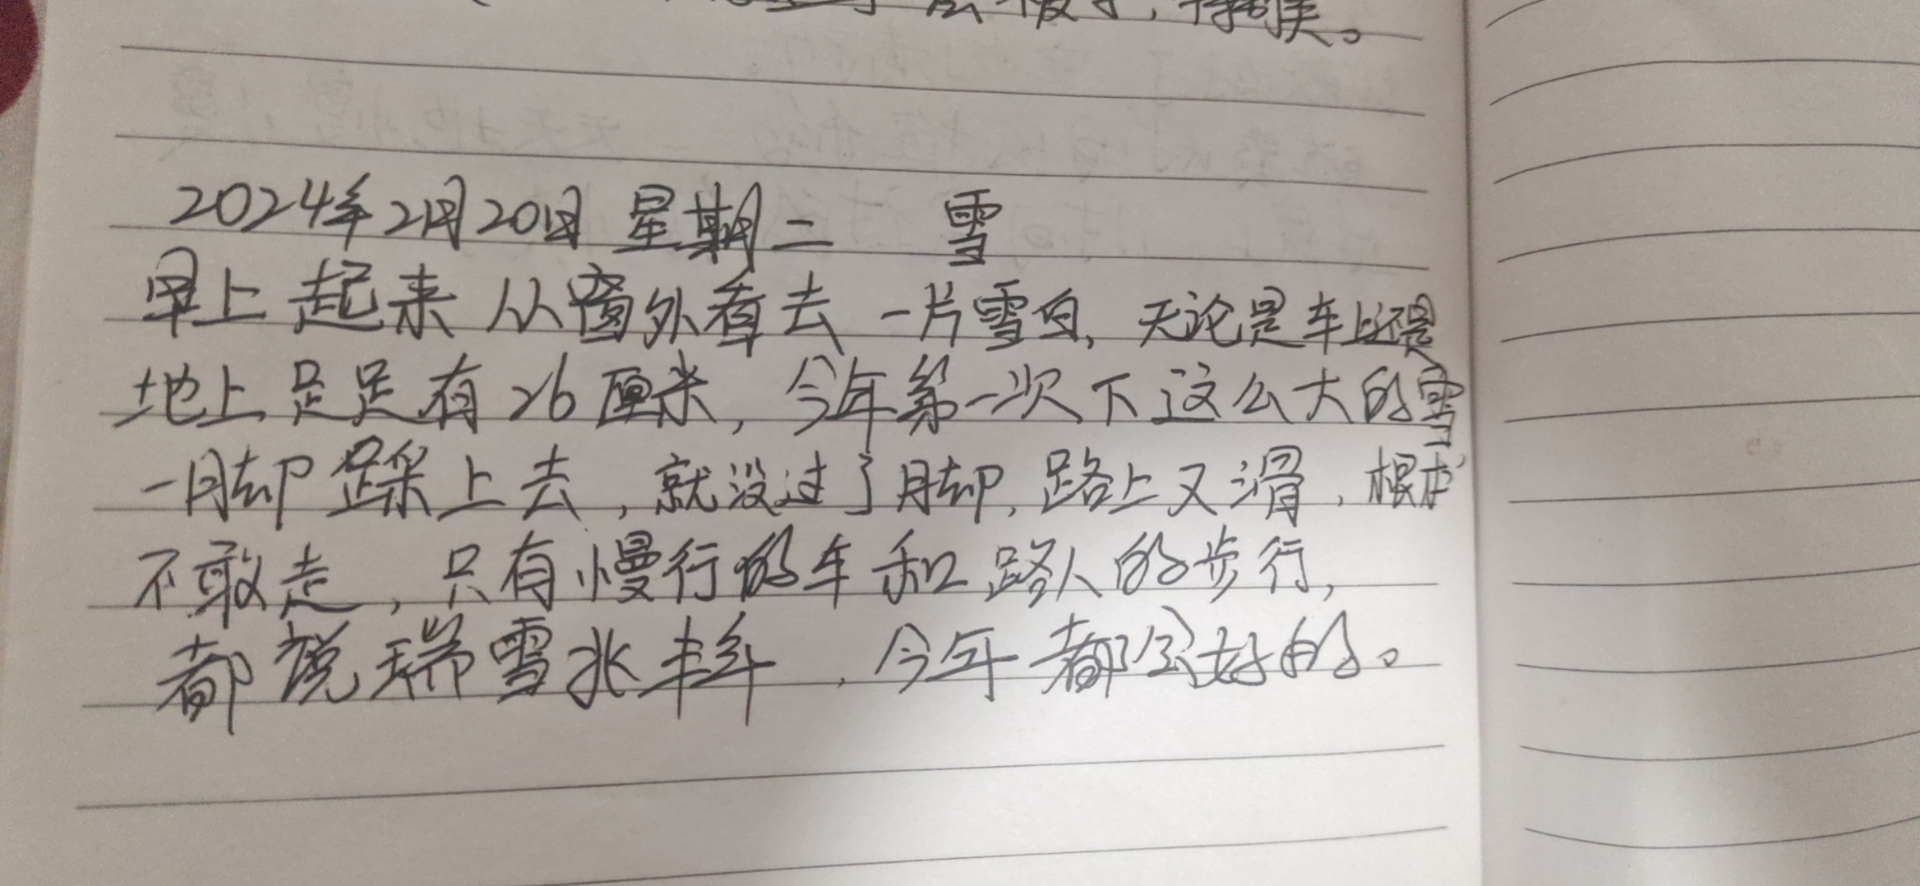 2024年2月20日 星期二 雪
早上起来从窗外看去一片雪白，无论是车上还是
地上足足有26厘米，今年第一次下这么大的雪
一脚踩上去，就没过了脚，路上又滑，根本
不敢走，只有慢行的车和路人的步行，
都说瑞雪兆丰年，今年都会好的。